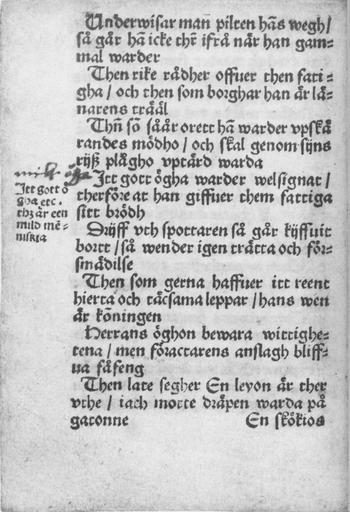 Underwisar man pilten hãs wegh/
så går hã icke thr̃ ifrå när han gam-
mal warder
Then rike rådher offuer then fati-
gha/och then som borghar han är lä-
narens träål
Thñ sõ såår orett hã warder vpskä
randes mödho/och skal genom sijns
rijß plågho vptärd warda
Itt gott ögha warder welsignat/
therföre at han giffuer them fattiga
sitt brödh
Drijff vth spottaren så går kijffuit
bortt/så wender igen trätta och för-
smädilse
Then som gerna haffuer itt reent
hierta och täcsama leppar/hans wen
är konungen
Herrans öghon bewara wittighe-
tena/men föractarens anslagh bliff-
ua fåfeng
Then late segher En leyon är ther
vthe/iach motte dräpen warda på
gatonne En skökios
Itt gott ö
gha etc.
thz är een
mild mẽ-
niskia